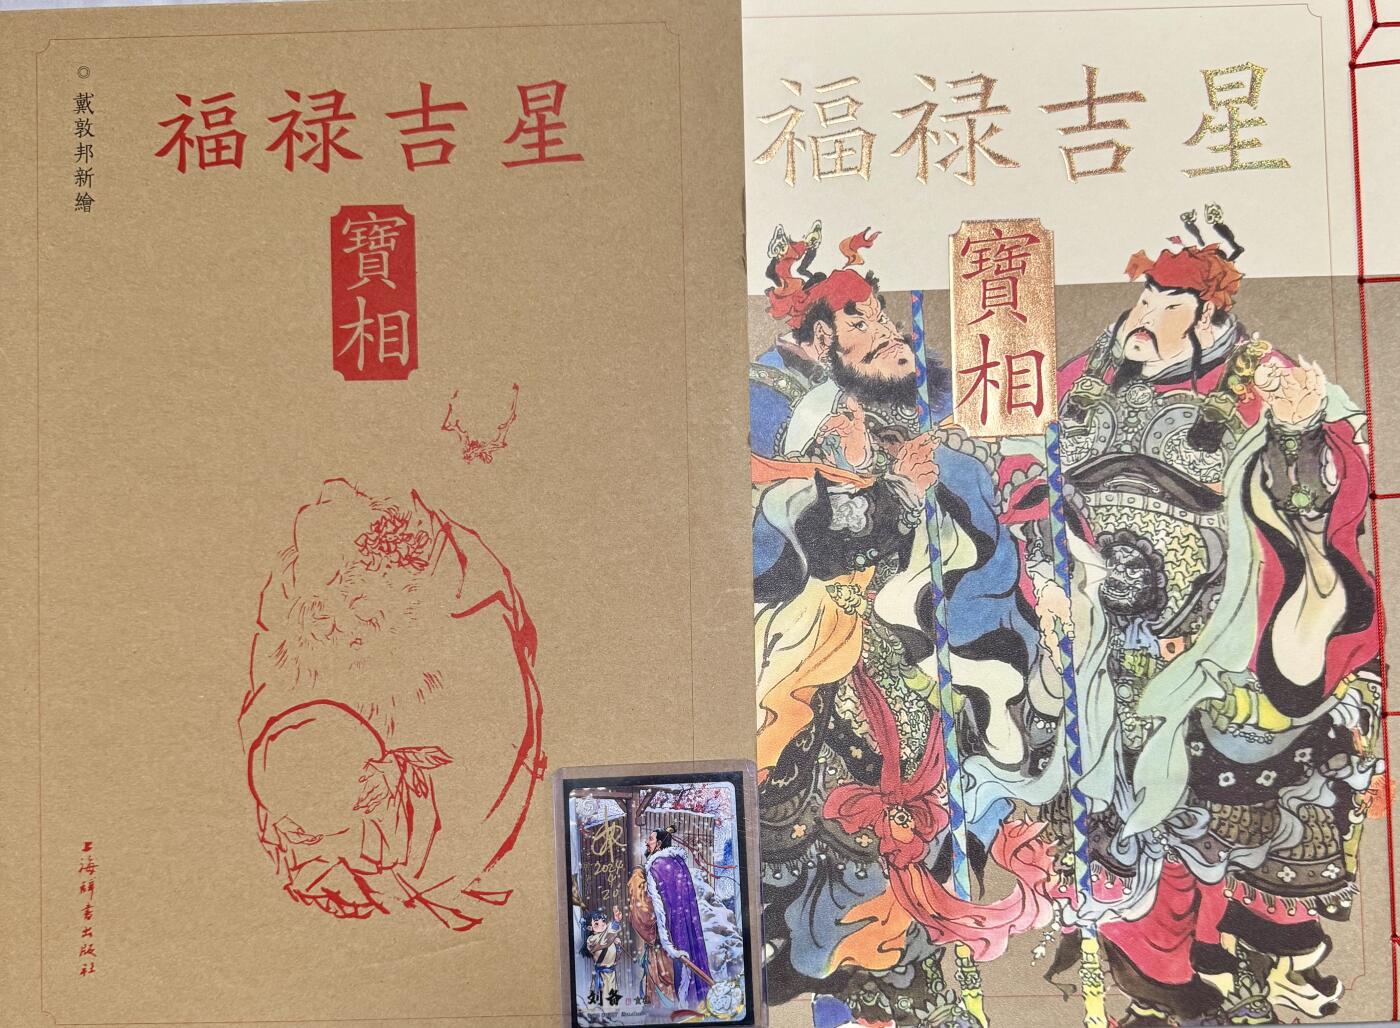 ◎戴敦邦新繪
福禄吉星
寶相
上海辞书出版社
福禄吉星
寶相
2024
20
刘备